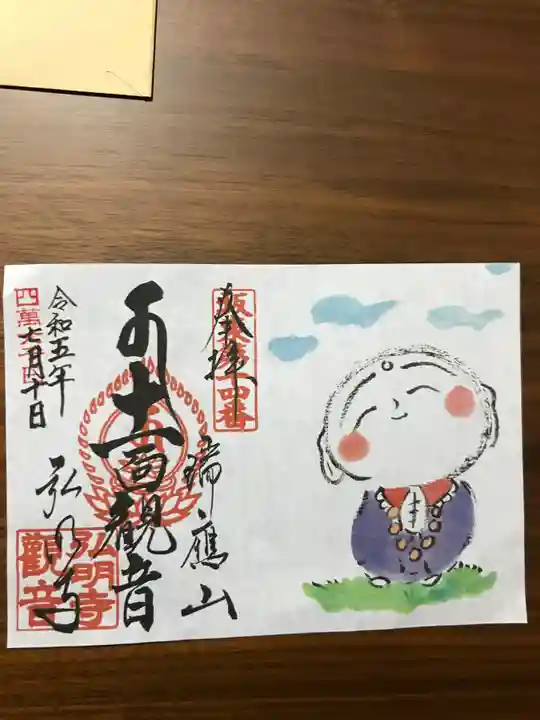 奉拝
坂東第十四番
瑞應山
十一面観音
弘明寺
弘明寺
觀音
令和五年
七月十日
四萬